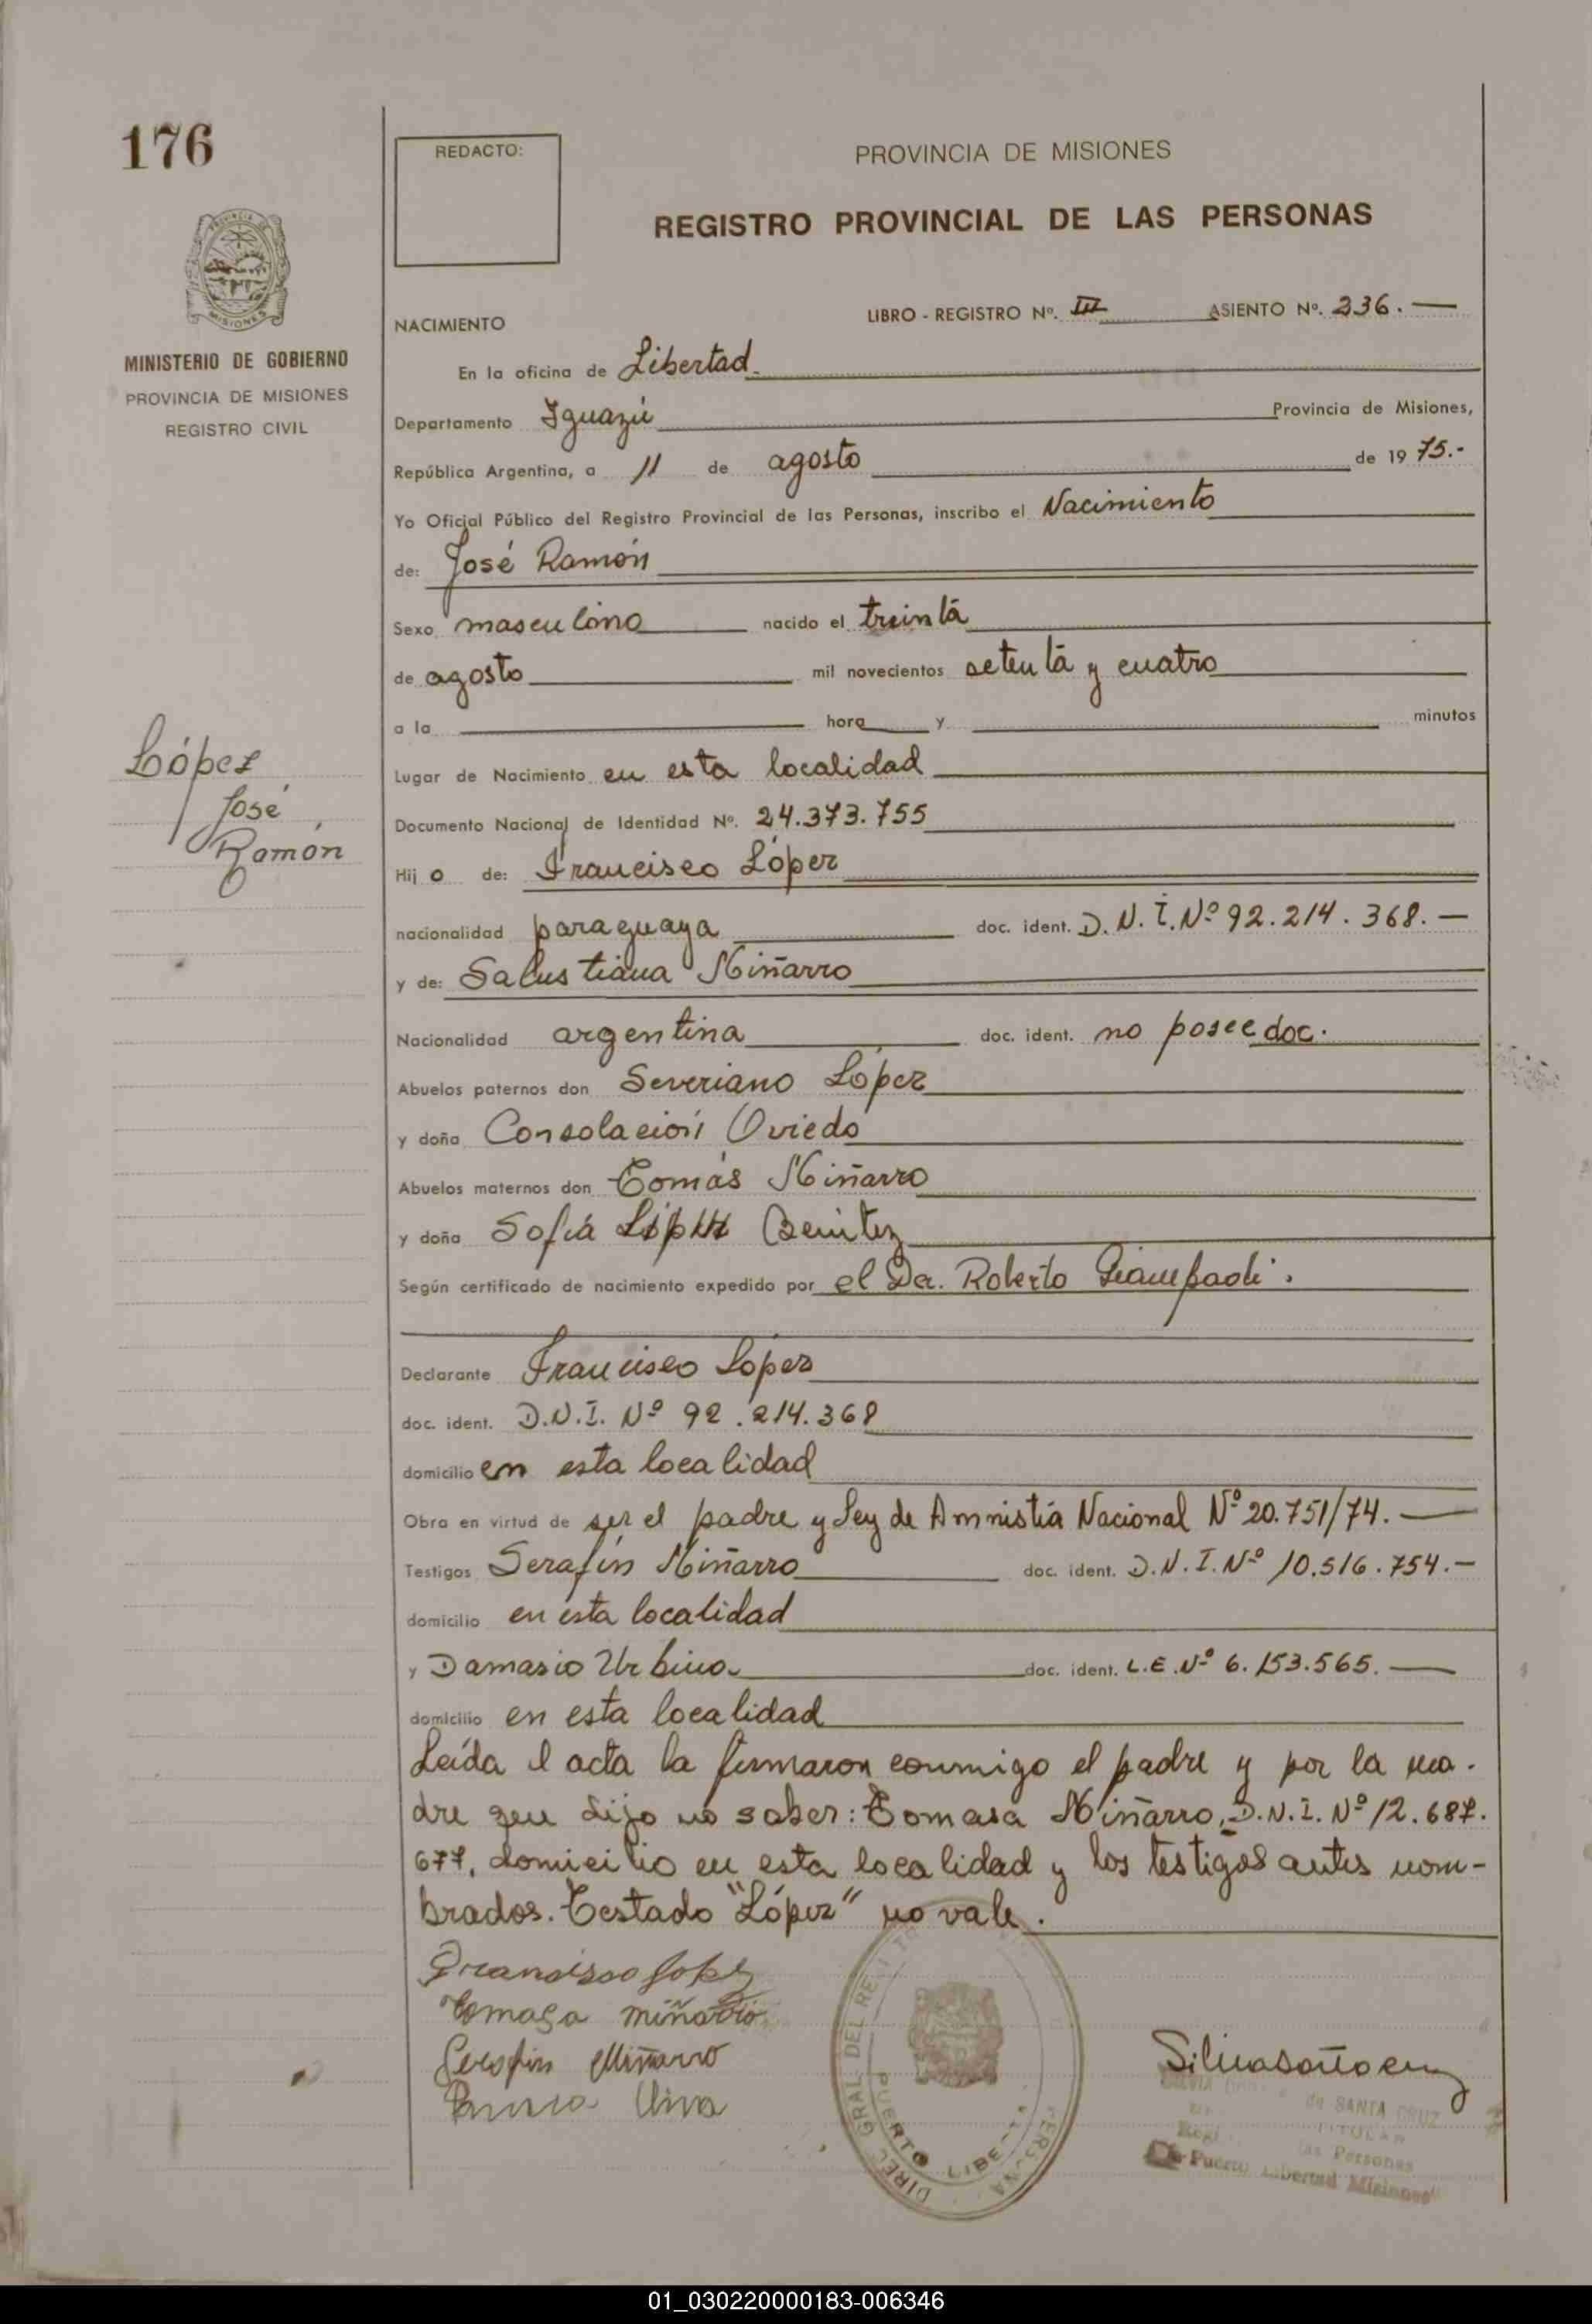 176
REDACTO:
PROVINCIA DE MISIONES
REGISTRO PROVINCIAL DE LAS PERSONAS
MISIONES
MINISTERIO DE GOBIERNO
PROVINCIA DE MISIONES
REGISTRO CIVIL
NACIMIENTO
LIBRO - REGISTRO Nº. III ASIENTO Nº. 236.—
En la oficina de Libertad.
Departamento Iguazú Provincia de Misiones,
República Argentina, a 11 de agosto de 1975.-
Yo Oficial Público del Registro Provincial de las Personas, inscribo el Nacimiento
de: José Ramón
Sexo masculino nacido el treinta
de agosto mil novecientos setenta y cuatro
a la hora y minutos
López
José
Ramón
Lugar de Nacimiento en esta localidad
Documento Nacional de Identidad Nº. 24.373.755
Hijo de: Francisco López
nacionalidad paraguaya doc. ident. D.N.I.Nº 92.214.368.—
y de: Salustiana Miñarro
Nacionalidad argentina doc. ident. no posee doc.
Abuelos paternos don Severiano López
y doña Consolación Oviedo
Abuelos maternos don Tomás Miñarro
y doña Sofia López Benitez
Según certificado de nacimiento expedido por el Dr. Roberto Giampaoli.
Declarante Francisco López
doc. ident. D.N.I. Nº 92.214.368
domicilio en esta localidad
Obra en virtud de ser el padre y Ley de Amnistía Nacional Nº 20.751/74.—
Testigos Serafín Miñarro doc. ident. D.N.I.Nº 10.516.754.—
domicilio en esta localidad
y Damasio Urbina doc. ident. L.E.Nº 6.153.565.—
domicilio en esta localidad
Leída el acta la firmaron conmigo el padre y por la ma-
dre que dijo no saber: Tomasa Miñarro, D.N.I. Nº 12.687.
677, domicilio en esta localidad y los testigos antes nom-
brados. Testado "López" no vale.
Francisco Lopez
Tomasa miñarro
Serafin Miñarro
DIREC. GRAL. DEL
PUERTO LIBE
de SANTA CRUZ
TITULAR
las Personas
Puerto Libertad Misiones
01_030220000183-006346